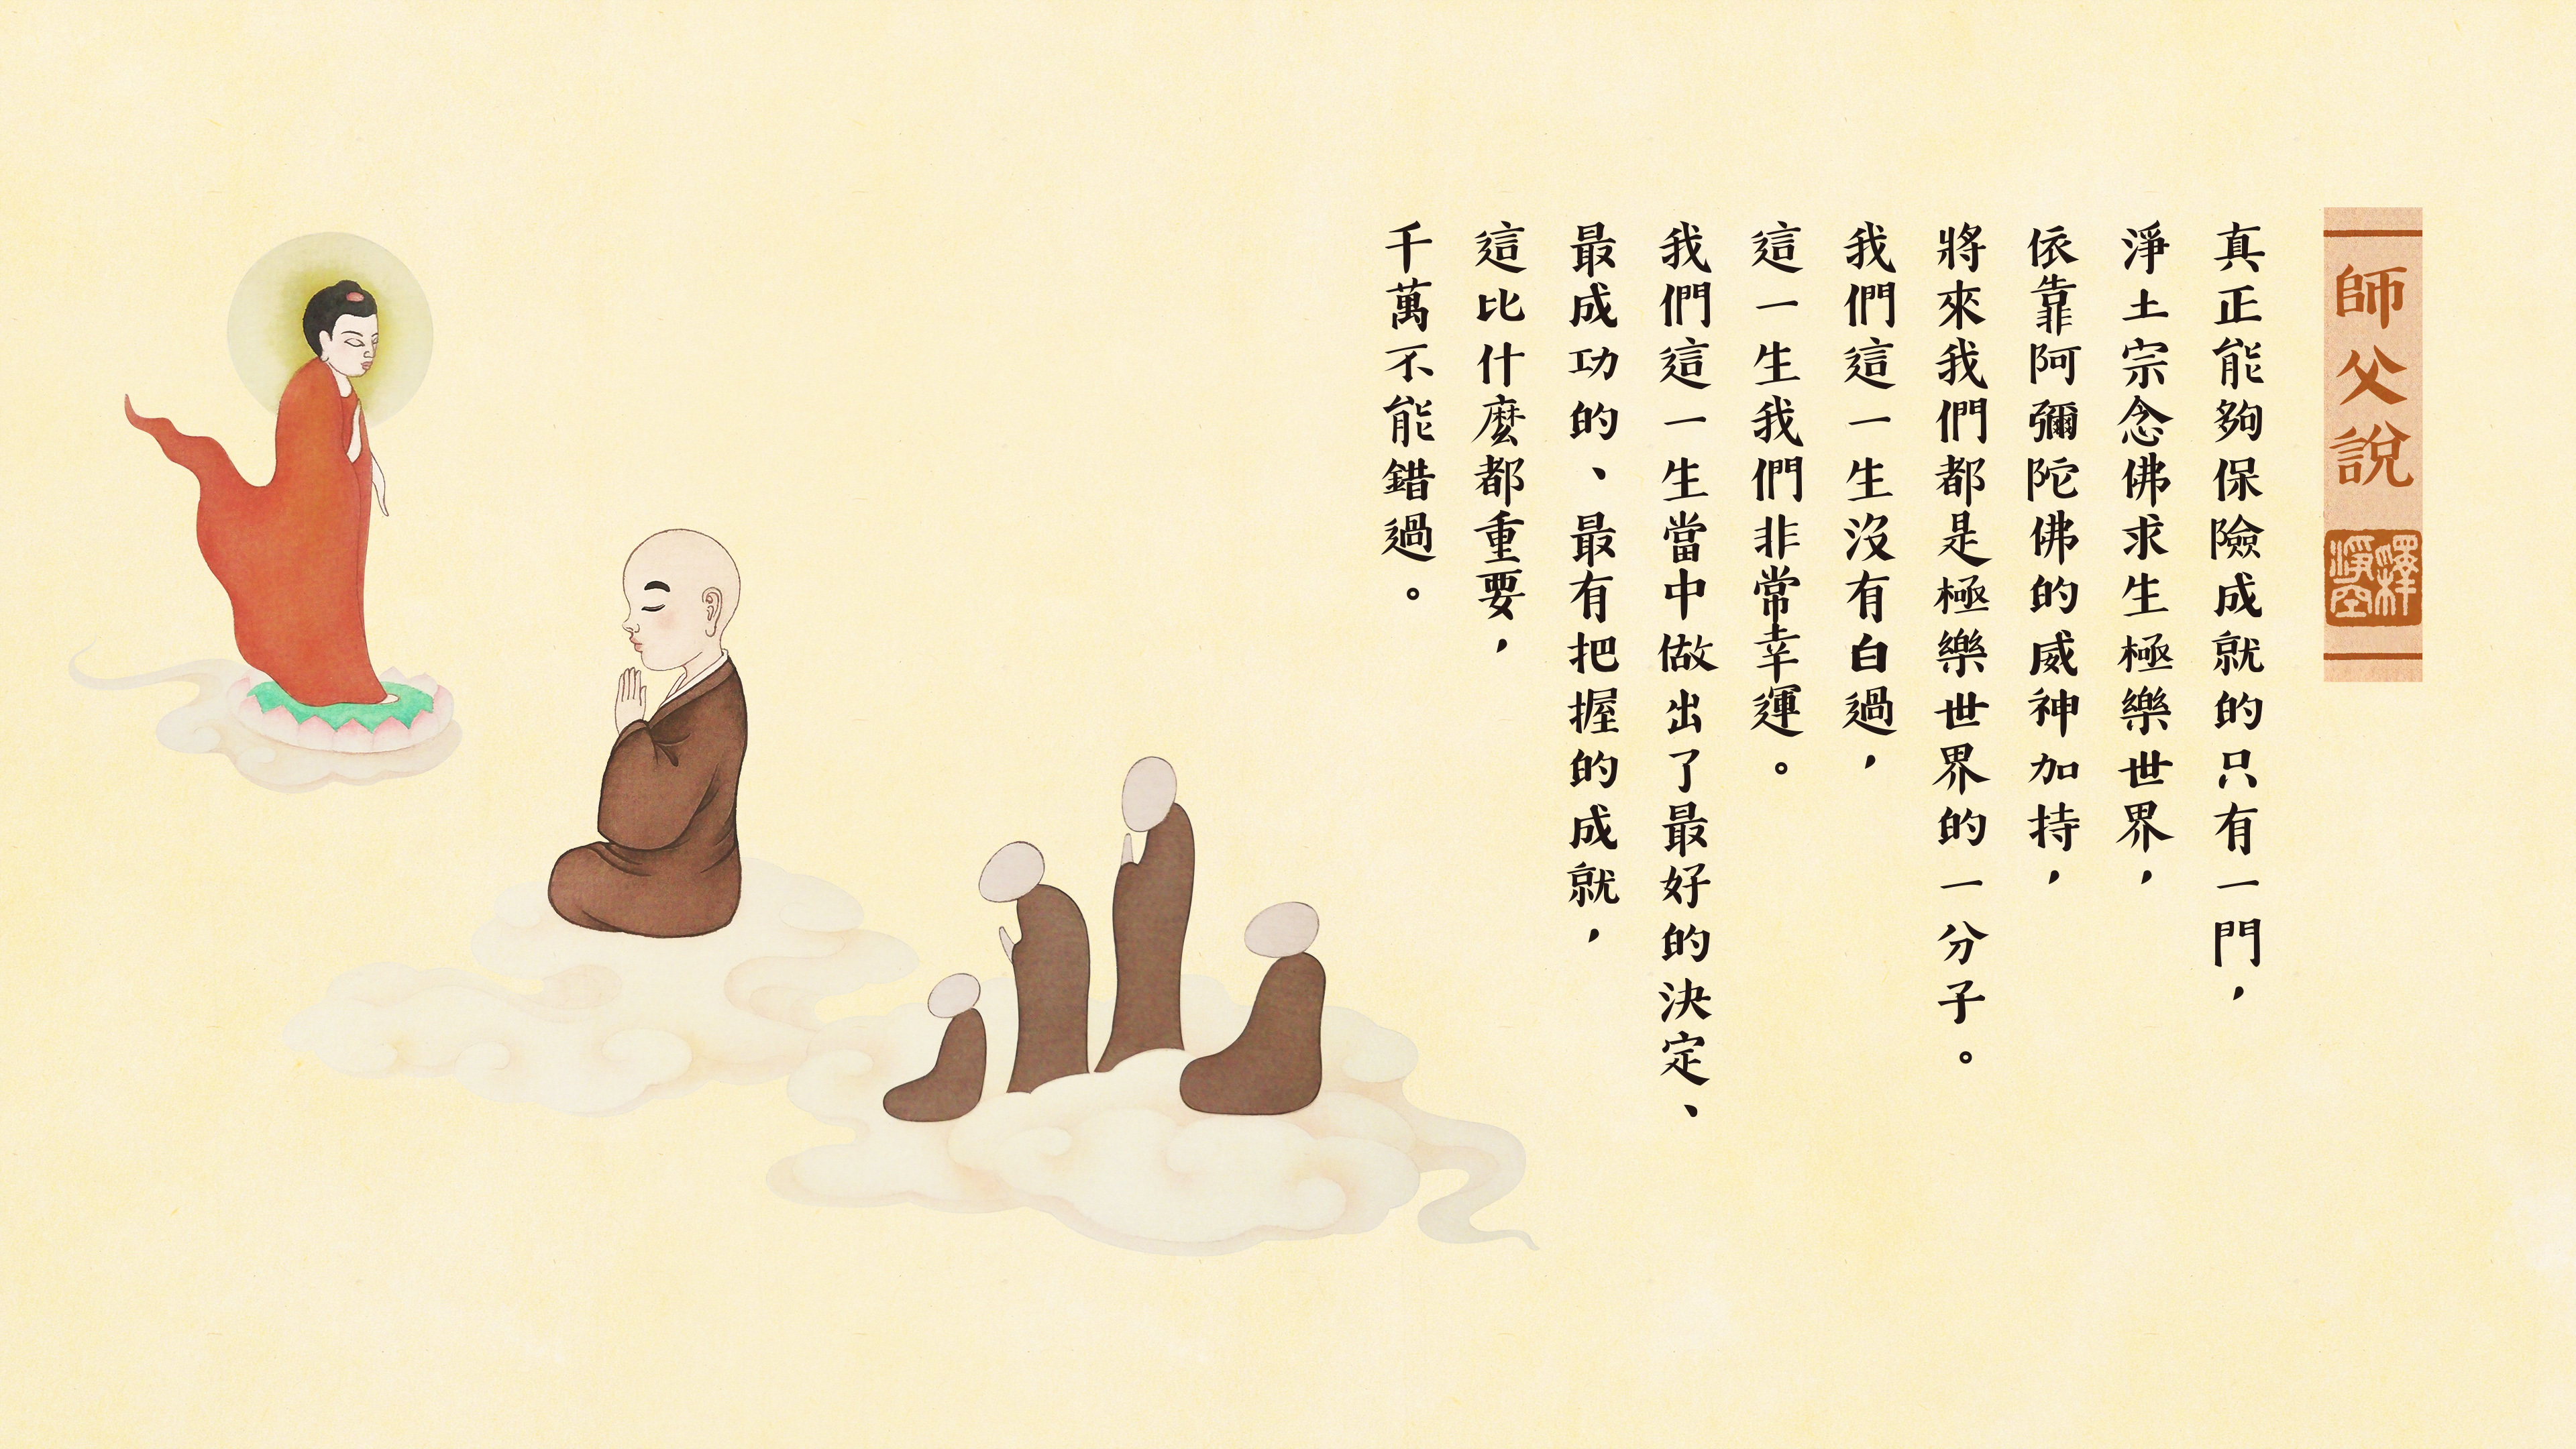 師父說
釋淨空
真正能夠保險成就的只有一門，
淨土宗念佛求生極樂世界，
依靠阿彌陀佛的威神加持，
將來我們都是極樂世界的一分子。
我們這一生沒有白過，
這一生我們非常幸運。
我們這一生當中做出了最好的決定、
最成功的、最有把握的成就，
這比什麼都重要，
千萬不能錯過。